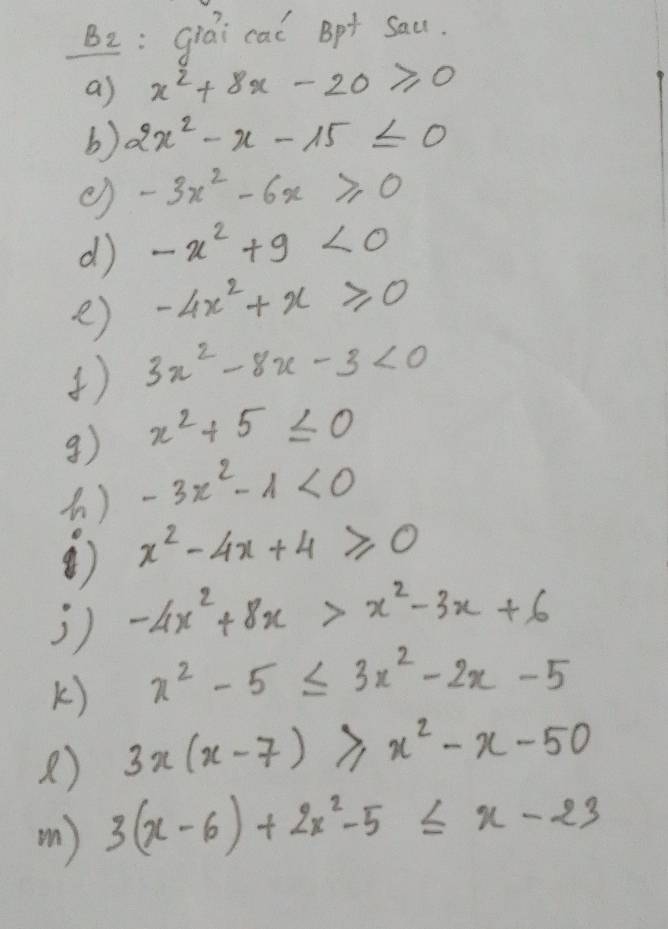 B2 : Giải các Bpt Sau.
a) x² + 8x - 20 ⩾ 0
b) 2x² - x - 15 ≤ 0
c) - 3x² - 6x ⩾ 0
d) - x² + 9 < 0
e) - 4x² + x ⩾ 0
f) 3x² - 8x - 3 < 0
g) x² + 5 ≤ 0
h) - 3x² - 1 < 0
i) x² - 4x + 4 ⩾ 0
j) - 4x² + 8x > x² - 3x + 6
k) x² - 5 ≤ 3x² - 2x - 5
l) 3x(x - 7) ⩾ x² - x - 50
m) 3(x - 6) + 2x² - 5 ≤ x - 23